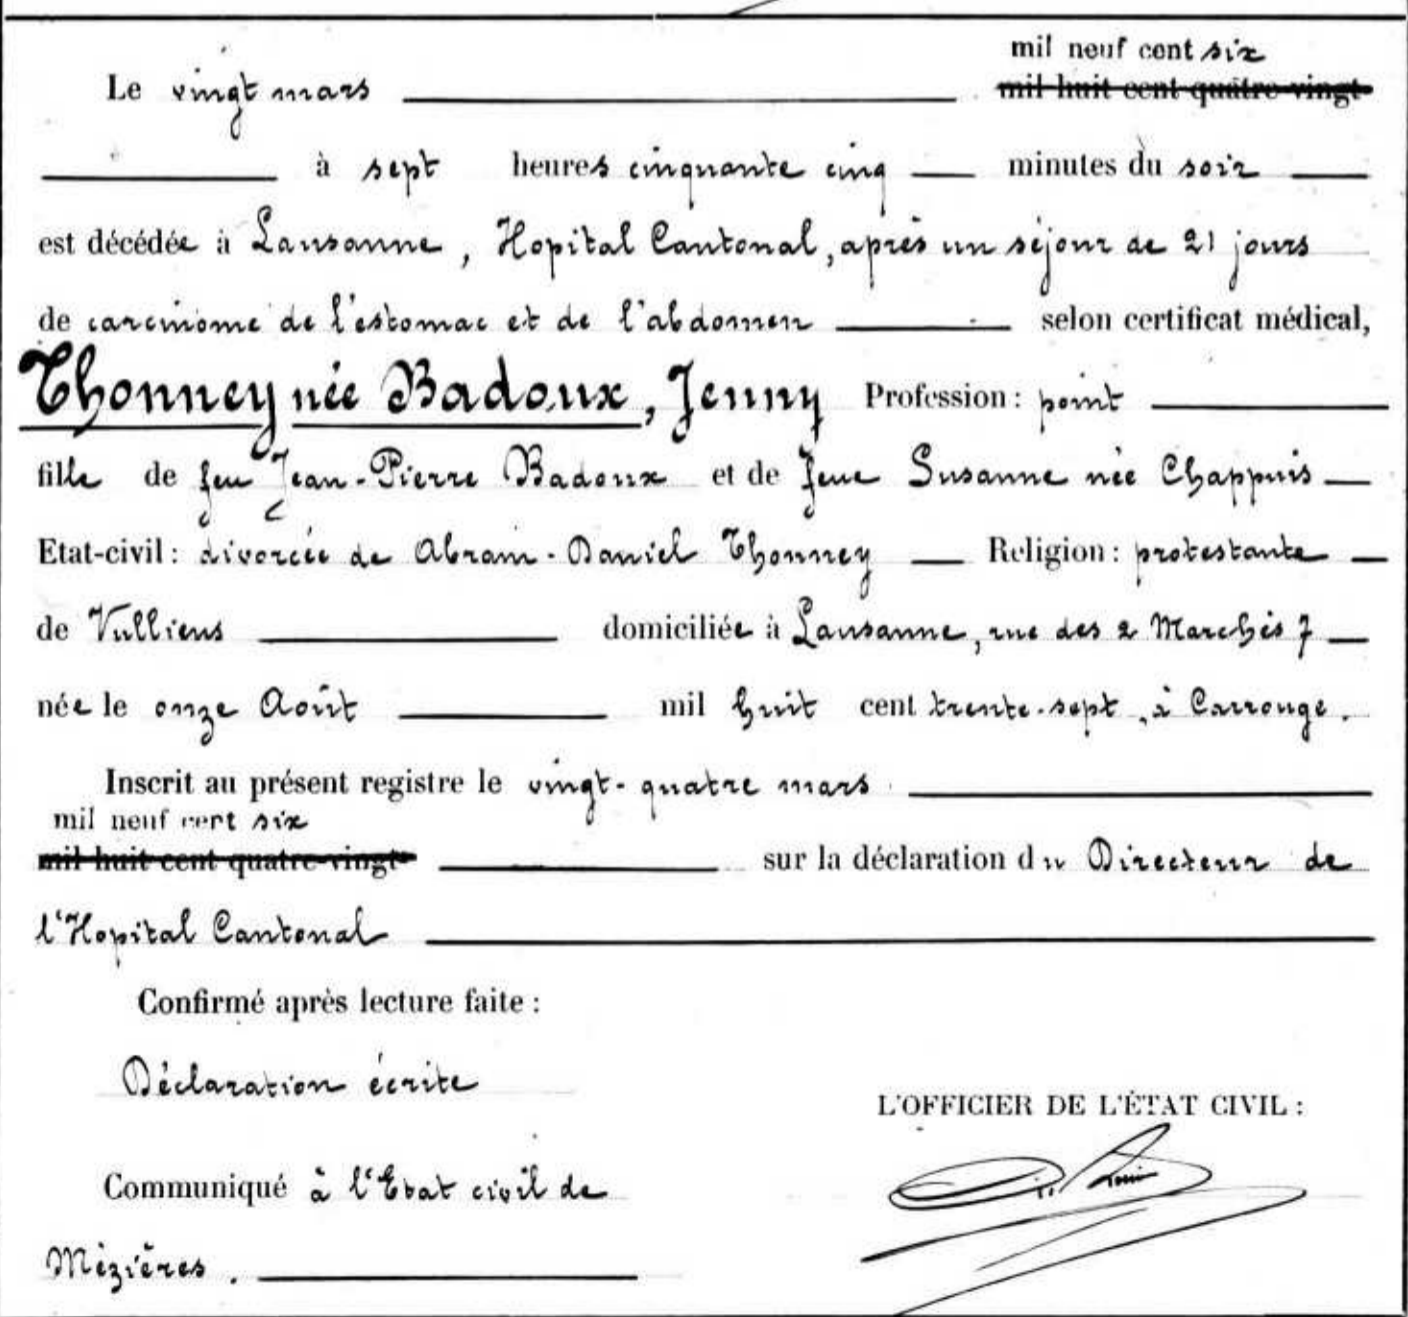 mil neuf cent six
Le vingt mars mil huit cent quatre-vingt
à sept heures cinquante cinq minutes du soir
est décédée à Lausanne, Hopital Cantonal, après un séjour de 21 jours
de carcinome de l'estomac et de l'abdomen selon certificat médical,
Thonney née Badoux, Jenny Profession : point
fille de feu Jean-Pierre Badoux et de feue Susanne née Chappuis
Etat-civil : divorcée de Abram-Daniel Thonney Religion : protestante
de Vulliens domiciliée à Lausanne, rue des 2 Marchés 7
née le onze Août mil huit cent trente-sept, à Carrouge.
Inscrit au présent registre le vingt-quatre mars
mil neuf cent six
mil huit cent quatre-vingt sur la déclaration du Directeur de
l'Hopital Cantonal
Confirmé après lecture faite :
Déclaration écrite
L'OFFICIER DE L'ÉTAT CIVIL :
Communiqué à l'Etat civil de
Mézières.